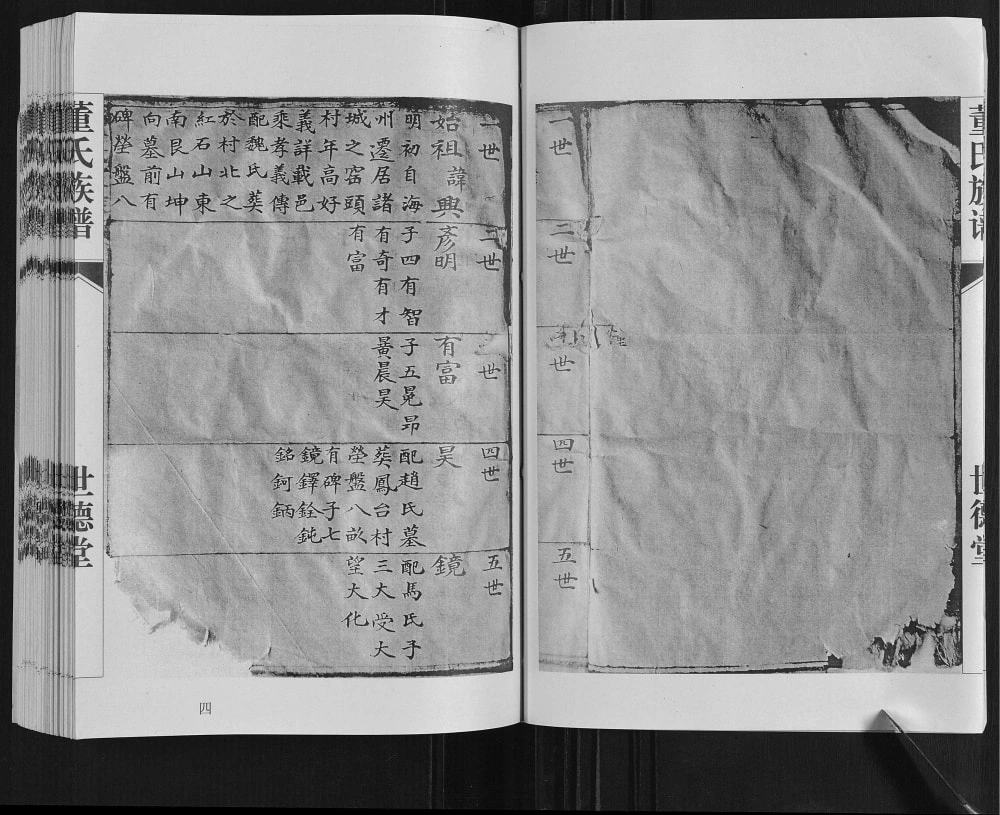 董氏族谱
世德堂
一世
二世
世
四世
五世
一世
始祖諱興
明初自海
州遷居諸
城之窑頭
村年高好
義詳載邑
乘孝義傳
配魏氏葬
於村北之
紅石山東
南艮山坤
向墓前有
碑塋盤八
二世
彥明
子四有智
有奇有才
有富
三世
有富
子五冕昂
晨昊
四世
昊
配趙氏墓
葬鳳台村
塋盤八畝
有碑子七
鏡鐸銓鈍
銘鈳鈵
五世
鏡
配馬氏子
三大受大
望大化
董氏族谱
世德堂
四